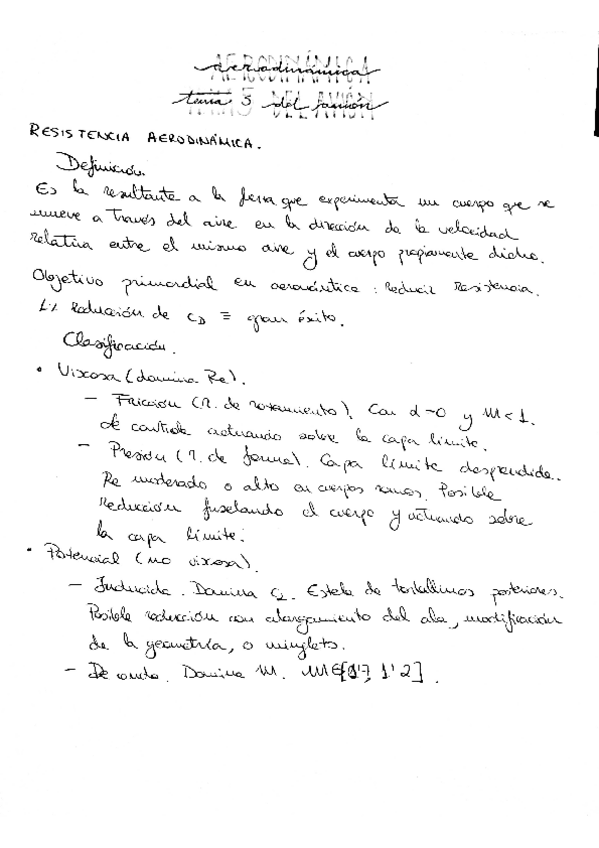 AERODINÁMICA
aerodinámica
TEMA 5 DEL AVIÓN
tema 5 del avión
RESISTENCIA AERODINÁMICA.
Definición.
Es la resultante a la fuerza que experimenta un cuerpo que se
mueve a través del aire en la dirección de la velocidad
relativa entre el mismo aire y el cuerpo propiamente dicho.
Objetivo primordial en aeronáutica: Reducir Resistencia.
1% Reducción de CD ≡ gran éxito.
Clasificación.
• Viscosa (domina Re).
– Fricción (R. de rozamiento). Con α~0 y M<1.
Se controla actuando sobre la capa límite.
– Presión (R. de forma). Capa límite desprendida.
Re moderado o alto en cuerpos romos. Posible
reducción fuselando el cuerpo y actuando sobre
la capa límite.
• Potencial (no viscosa).
– Inducida. Domina CL. Estela de torbellinos posteriores.
Posible reducción con alargamiento del ala, modificación
de la geometría, o winglets.
– De onda. Domina M. M∈[0'7, 1'2].